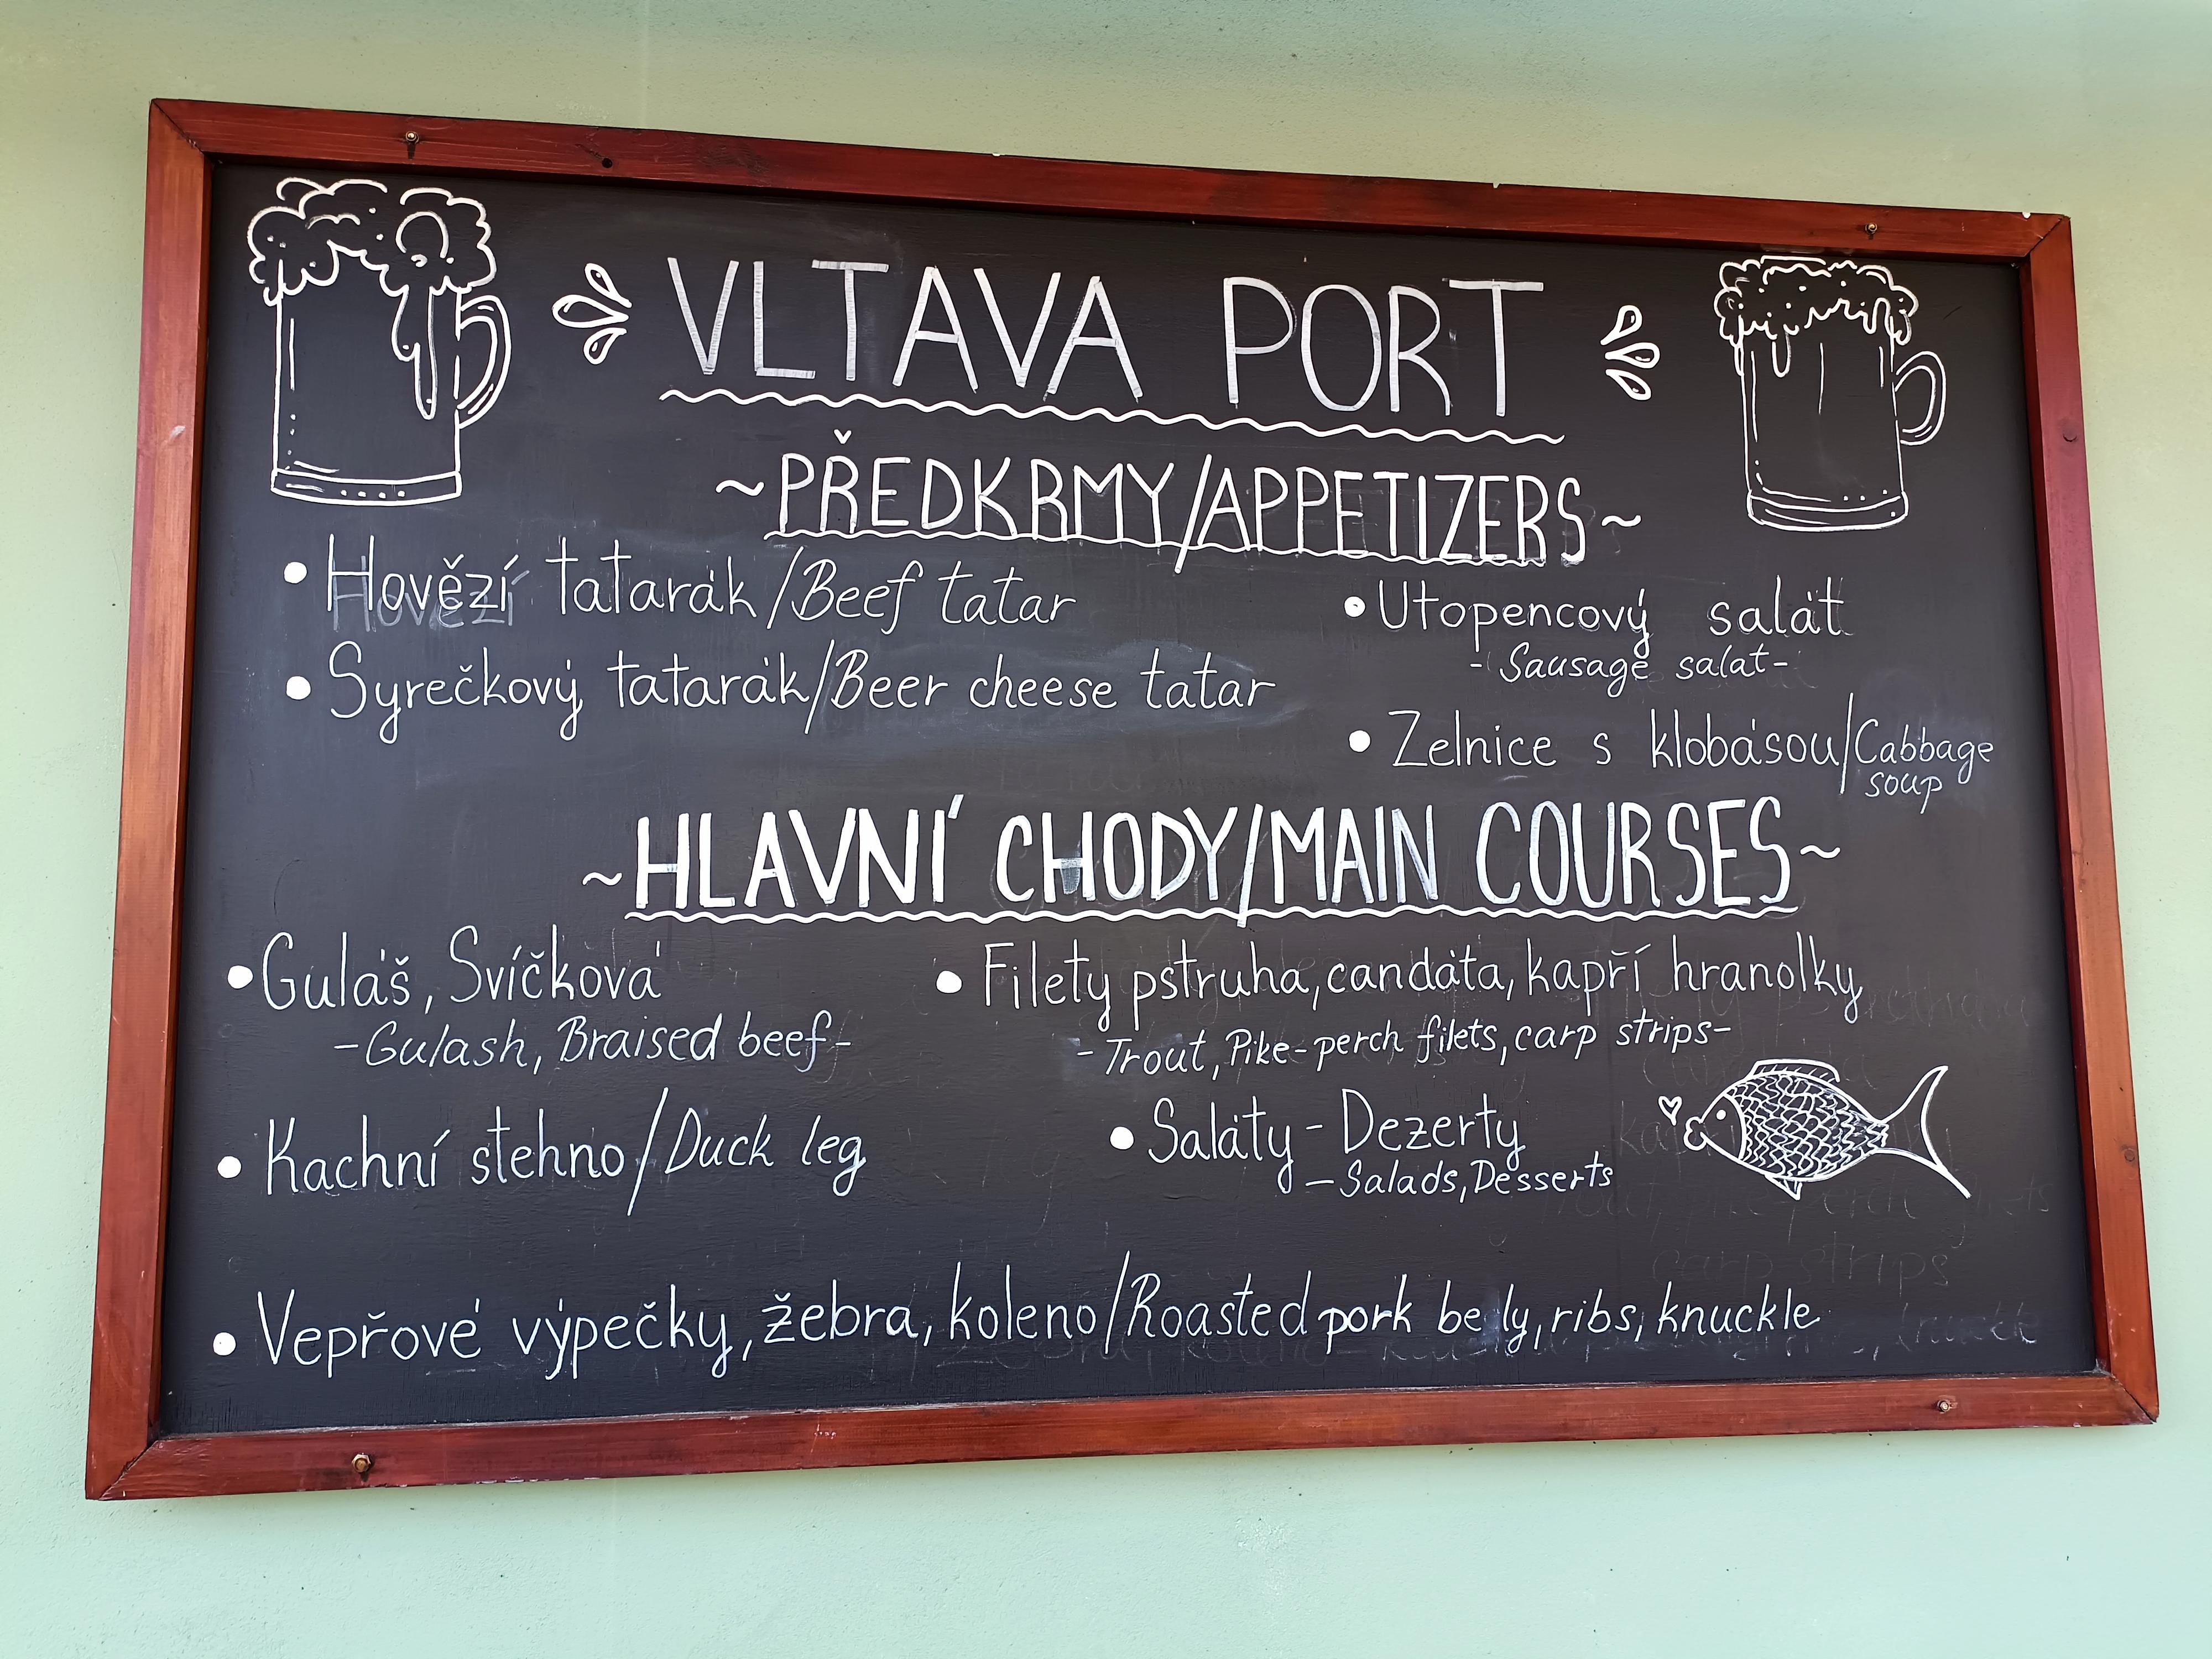 VLTAVA PORT
~PŘEDKRMY/APPETIZERS~
• Hovězí tatarák/Beef tatar
• Syrečkový tatarák/Beer cheese tatar
• Utopencový salát
- Sausage salat-
• Zelnice s klobásou/Cabbage
soup
~HLAVNÍ CHODY/MAIN COURSES~
• Guláš, Svíčková
-Gulash, Braised beef-
• Kachní stehno/Duck leg
• Filety pstruha, candáta, kapří hranolky
- Trout, Pike-perch filets, carp strips-
• Saláty - Dezerty
-Salads, Desserts
• Vepřové výpečky, žebra, koleno/Roasted pork be ly, ribs, knuckle